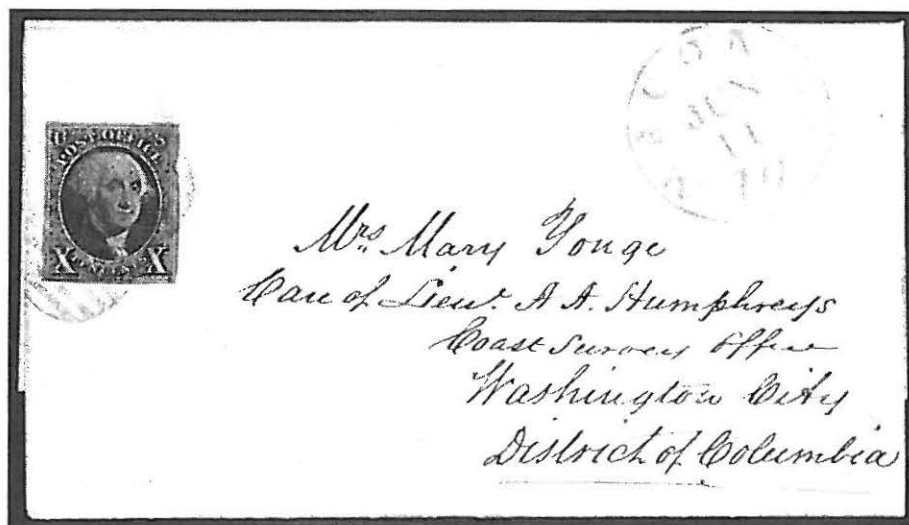 POST OFFICE
X X
JUN
11
10
Mrs Mary Yonge
Care of Lieut. A A. Humphreys
Coast Survey Office
Washington City
District of Columbia